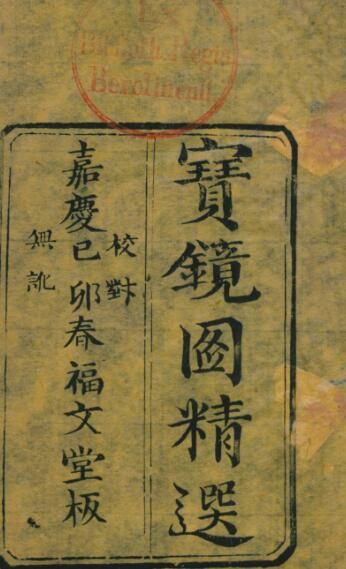 Ex
Biblioth. Regia
Berolinensi
寶鏡圖精選
校對
嘉慶己卯春福文堂板
無訛